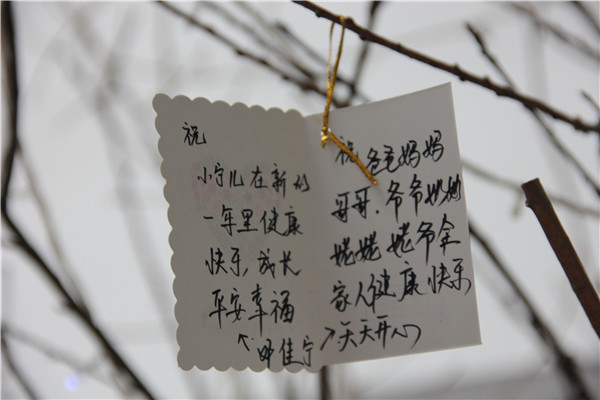 祝
小宁儿在新的
一年里健康
快乐,成长
平安幸福
↖邓佳宁↗
祝爸爸妈妈
哥哥.爷爷奶奶
姥姥姥爷全
家人健康快乐
天天开心